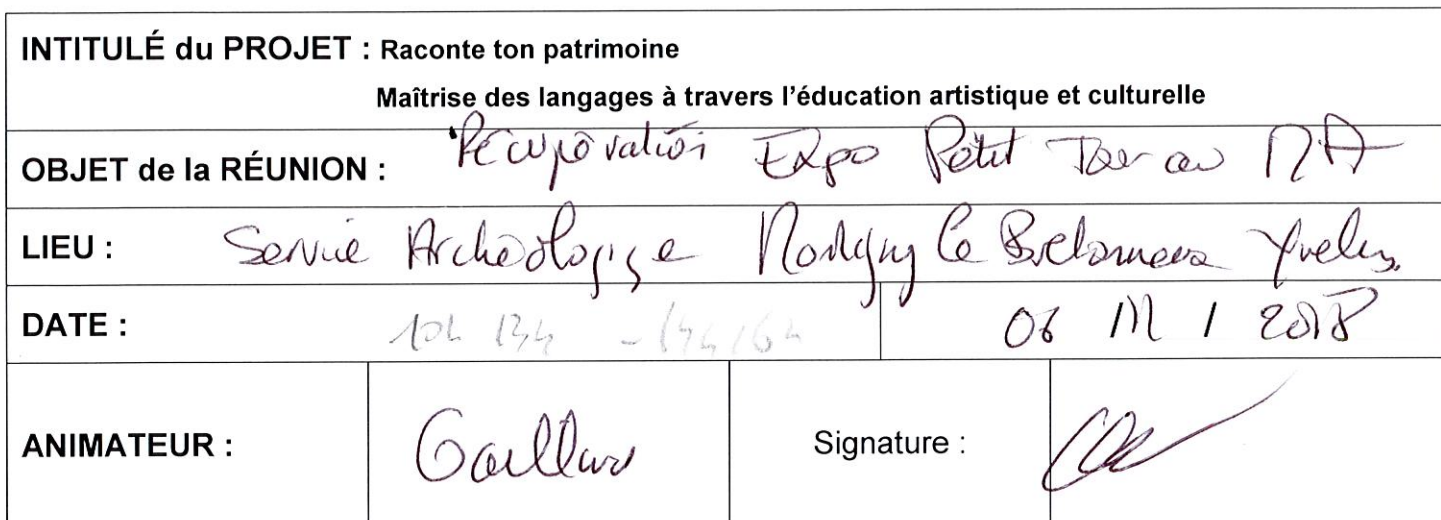 INTITULÉ du PROJET : Raconte ton patrimoine
Maîtrise des langages à travers l'éducation artistique et culturelle
OBJET de la RÉUNION : Récupération Expo Petit
LIEU : Service Archéologique Montigny le Bretonneux Yvelines
DATE : 10h 13h - 14h/16h 2018
ANIMATEUR : Gaillard Signature :